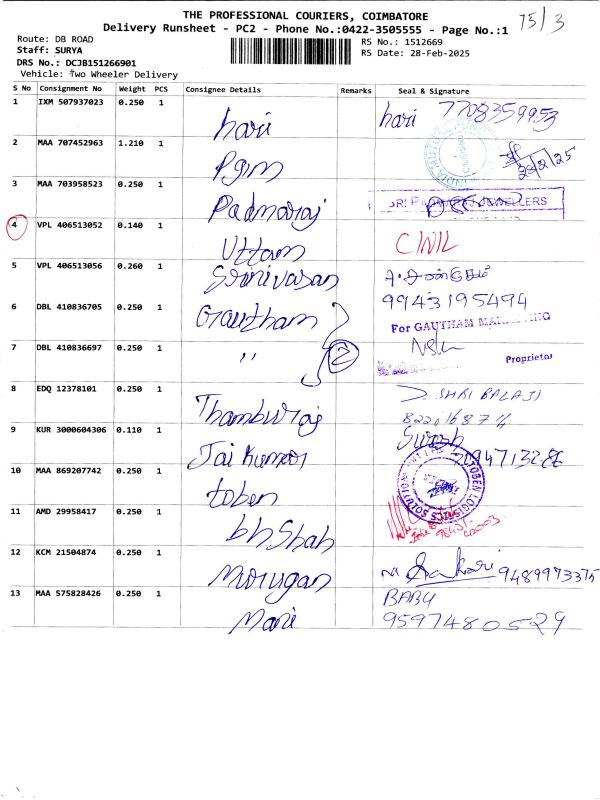 THE PROFESSIONAL COURIERS, COIMBATORE
75/3
Delivery Runsheet - PC2 - Phone No.:0422-3505555 - Page No.:1
Route: DB ROAD
RS No.: 1512669
Staff: SURYA
RS Date: 28-Feb-2025
DRS No.: DCJB151266901
Vehicle: Two Wheeler Delivery
S No Consignment No Weight PCS Consignee Details Remarks Seal & Signature
1 IXM 507937023 0.250 1 hari hari 7708359953
2 MAA 707452963 1.210 1 Pgim 28/2/25
3 MAA 703958523 0.250 1 Padmaraj
4 VPL 406513052 0.140 1 Uttam
5 VPL 406513056 0.260 1 Srinivasan
9943195494
6 DBL 410836705 0.250 1 Grautham For GAUTHAM
7 DBL 410836697 0.250 1 " 2 Proprietor
8 EDQ 12378101 0.250 1 Thamburaj SHRI BALAJI
9 KUR 3000604306 0.110 1 Jai Kumar Suresh
10 MAA 869207742 0.250 1 toben
11 AMD 29958417 0.250 1 bhShah
12 KCM 21504874 0.250 1 Morugan 9489973375
13 MAA 575828426 0.250 1 Mani BABU
9597480529